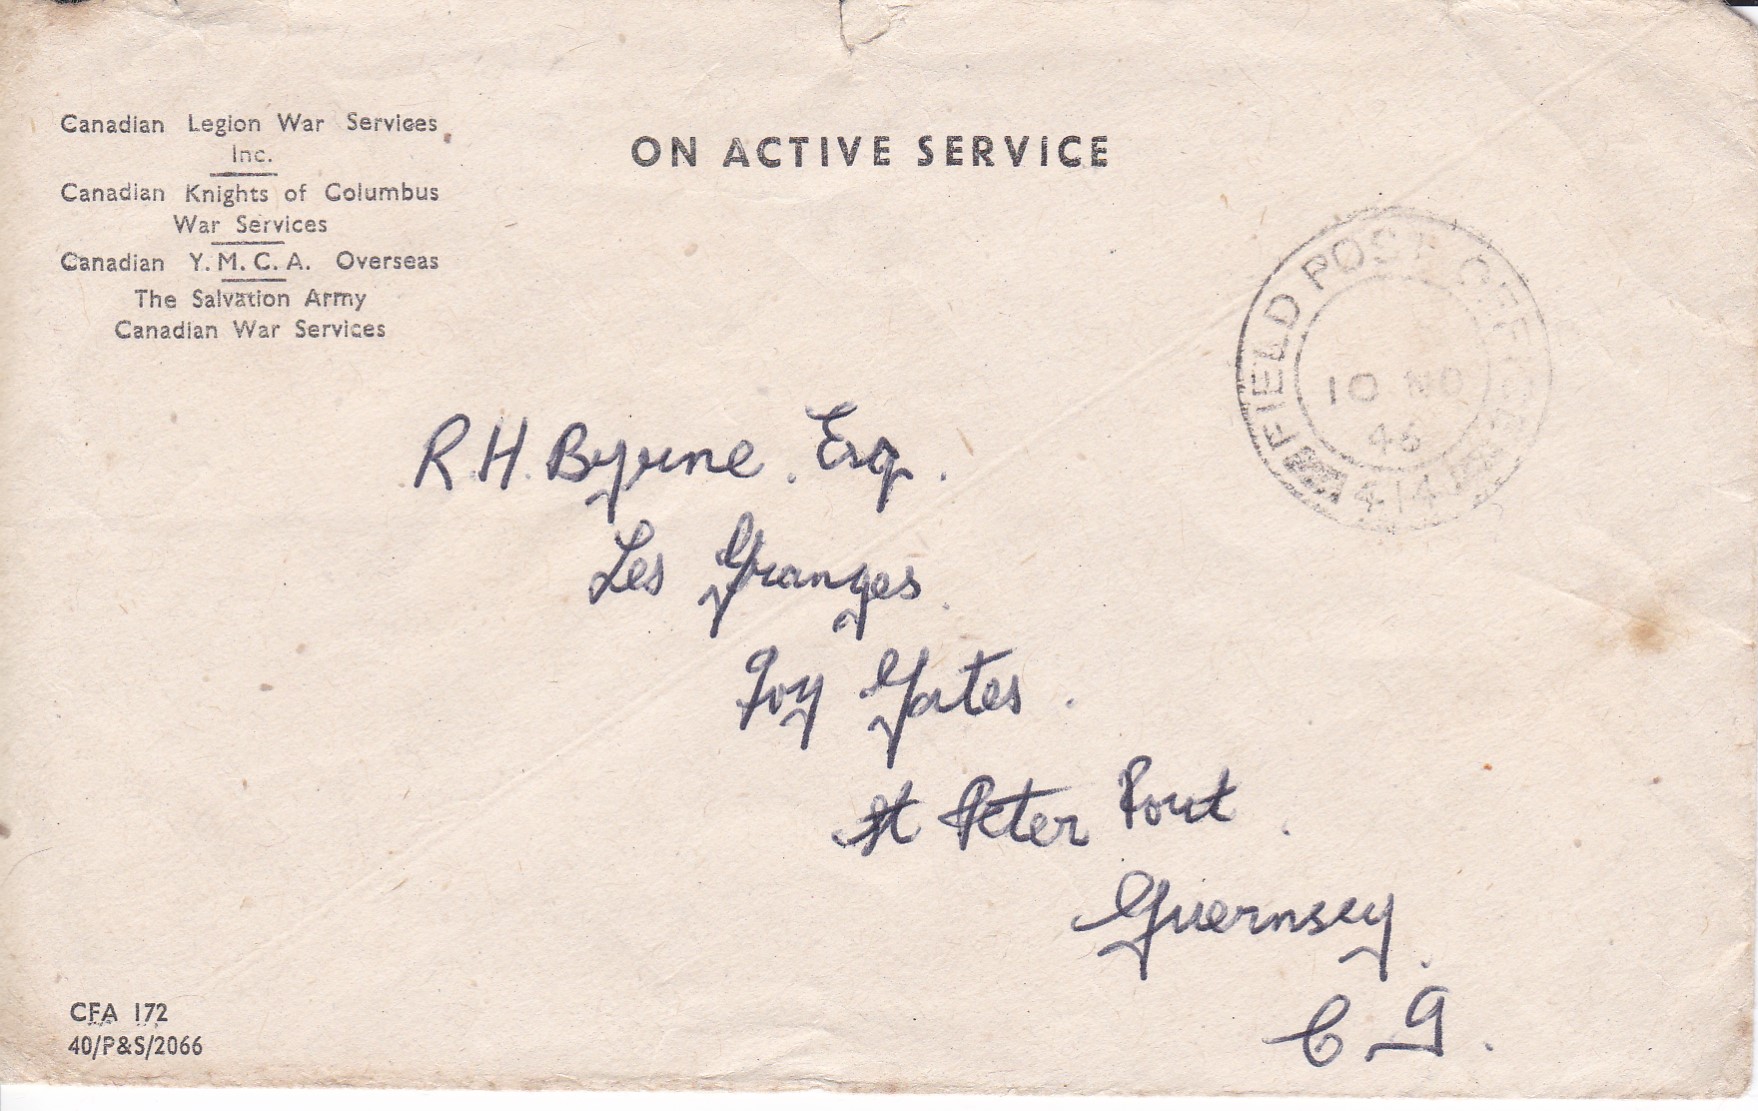 Canadian Legion War Services
Inc.
Canadian Knights of Columbus
War Services
Canadian Y.M.C.A. Overseas
The Salvation Army
Canadian War Services
ON ACTIVE SERVICE
FIELD POST OFFICE
10 NO
46
414
R.H. Byrne. Esq.
Les Granges.
Ivy Gates.
St Peter Port.
Guernsey.
C I.
CFA 172
40/P&S/2066